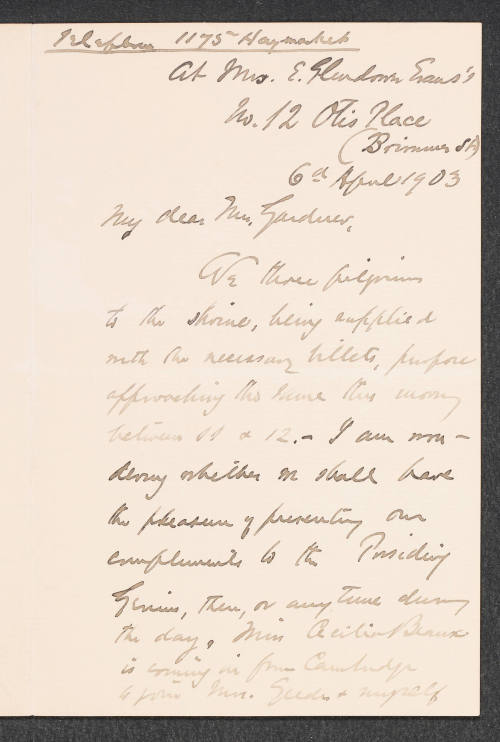 Telephone 1175 Haymarket
At Mrs. E. Glendower Evans's
No. 12 Otis Place
(Brimmer St)
6th April 1903
My dear Mrs. Gardner,
We three pilgrims
to the shrine, being supplied
with the necessary billets, purpose
approaching the same this morng
between 11 & 12. – I am won-
dering whether we shall have
the pleasure of presenting our
compliments to the Presiding
Genius, then, or any time during
the day, Miss Cecilia Beaux
is coming in from Cambridge
to join Mrs. & myself